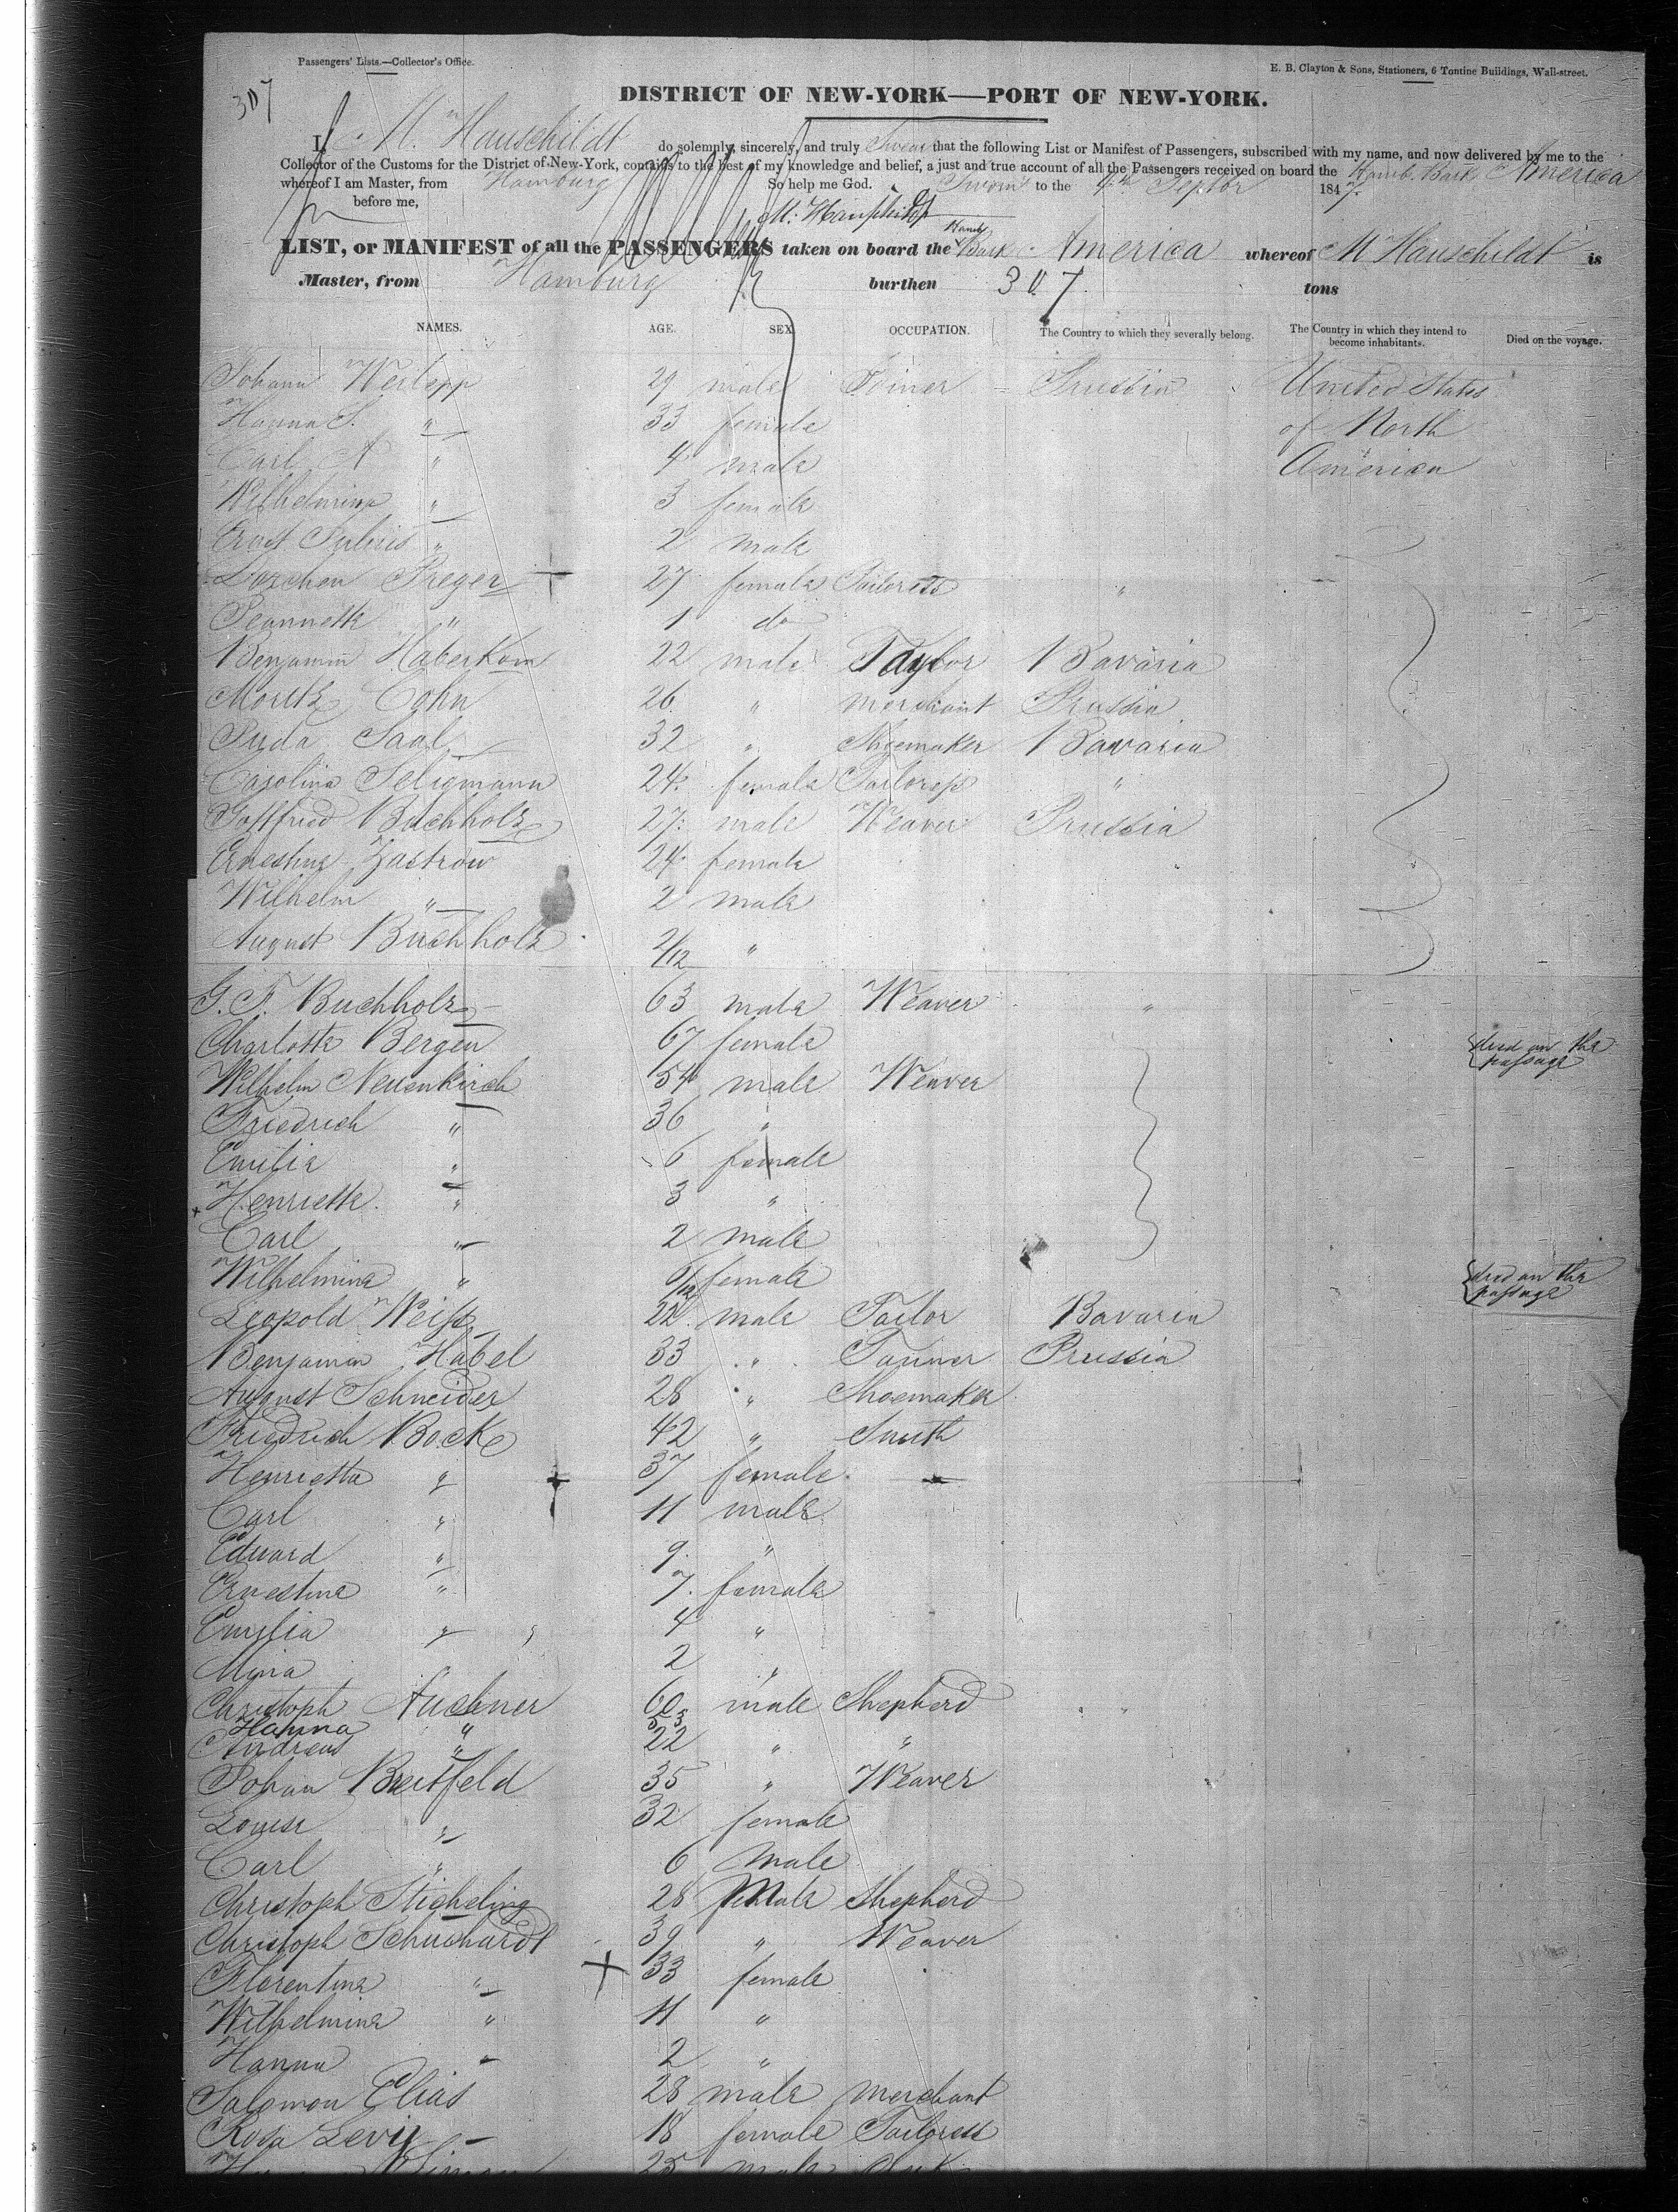 Passengers' Lists.—Collector's Office.
E. B. Clayton & Sons, Stationers, 6 Tontine Buildings, Wall-street.
307
DISTRICT OF NEW-YORK—PORT OF NEW-YORK.
I, M. Hauschildt do solemnly, sincerely, and truly Swear that the following List or Manifest of Passengers, subscribed with my name, and now delivered by me to the
Collector of the Customs for the District of New-York, contains to the best of my knowledge and belief, a just and true account of all the Passengers received on board the Hamb. Bark America
whereof I am Master, from Hamburg So help me God. Sworn to the 4th Septbr 1847.
before me,
M. Hauschildt
LIST, or MANIFEST of all the PASSENGERS taken on board the Hamb. Bark America whereof M Hauschildt is
Master, from Hamburg burthen 307 tons
NAMES. AGE. SEX. OCCUPATION. The Country to which they severally belong. The Country in which they intend to become inhabitants. Died on the voyage.
Johann 29 male Joiner Prussia United States
Hanna S. " 33 female of North
Carl A " 4 male America
Wilhelmina " 3 female
Ernst Julius " 2 male
Dorchen Preger 27 female Tailoress "
Jeannette " 1 do
Benjamin Haberkorn 22 male Taylor Bavaria
Moritz Cohn 26 " merchant Prussia
Juda Saal 32 " Shoemaker Bavaria
Carolina Seligmann 24 female Tailoress "
Gottfried Buchholz 27 male Weaver Prussia
Ernestine Zastrow 24 female
Wilhelm " 2 male
August Buchholz 2/12 "
G. F. Buchholz 63 male Weaver "
Charlotte Bergen 67 female died on the passage
Wilhelm Neuenkirch 54 male Weaver
Friedrich " 36 "
Emilia " 6 female
Henriette " 3 "
Carl " 2 male
Wilhelmina " 6/12 female died on the passage
Leopold Weiss 22 male Tailor Bavaria
Benjamin Habel 33 " Tanner Prussia
August Schneider 28 " Shoemaker
Friedrich Bock 42 " Smith
Henrietta " 37 female
Carl " 11 male
Eduard " 9 "
Ernestine " 7 female
Emilia " 4 "
Mina 2 "
Christoph 60 male Shepherd "
Hanna " 53
Andreas " 22 " "
Johan Breitfeld 35 " Weaver
Louise " 32 female
Carl " 6 male
Christoph Sticheling 28 Male Shepherd
Christoph Schuchardt 39 " Weaver
Florentina " 33 female
Wilhelmina " 11 "
Hanna " 2 "
Salomon Elias 28 male merchant
Rosa Levi 18 female Tailoress
25 male